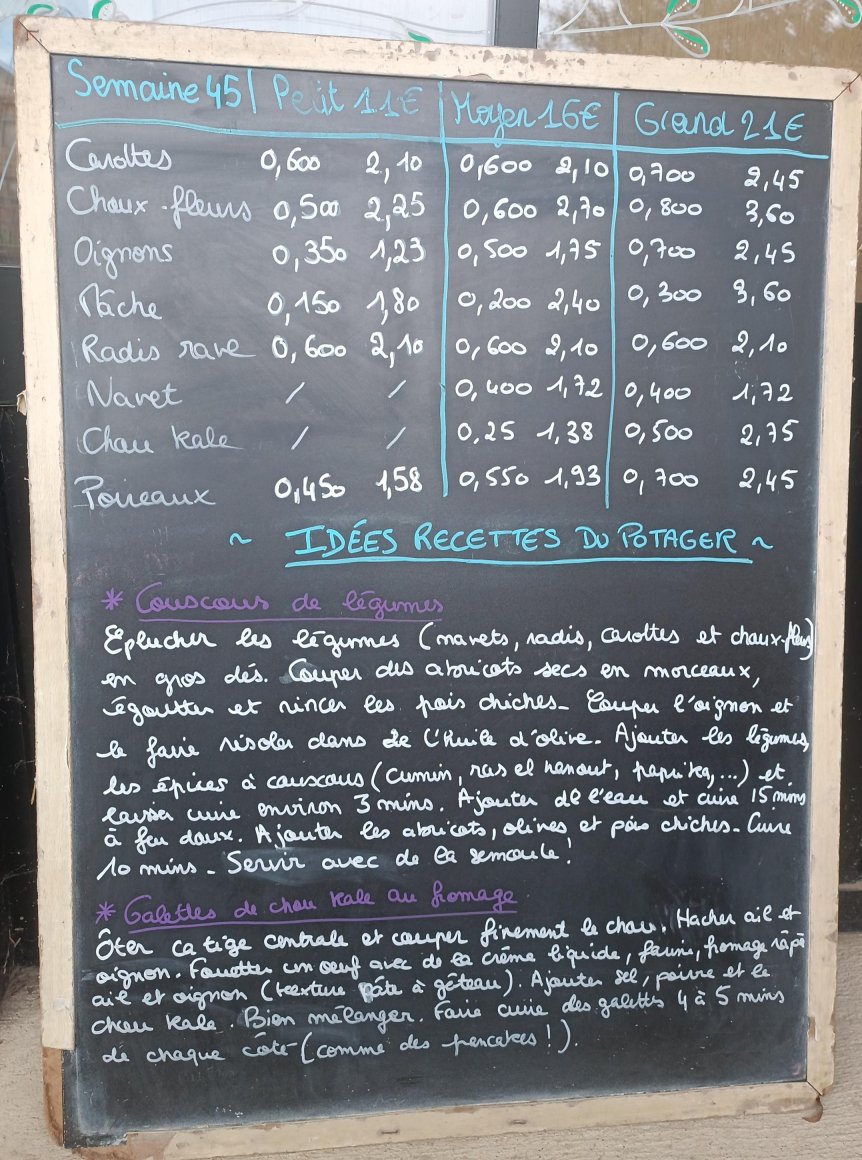 Semaine 45 | Petit 11€ | Moyen 16€ | Grand 21€
Carottes 0,600 2,10 0,600 2,10 0,700 2,45
Choux-fleurs 0,500 2,25 0,600 2,70 0,800 3,60
Oignons 0,350 1,23 0,500 1,75 0,700 2,45
Mâche 0,150 1,80 0,200 2,40 0,300 3,60
Radis rave 0,600 2,10 0,600 2,10 0,600 2,10
Navet / / 0,400 1,72 0,400 1,72
Chou kale / / 0,25 1,38 0,500 2,75
Poireaux 0,450 1,58 0,550 1,93 0,700 2,45
~ IDÉES RECETTES DU POTAGER ~
* Couscous de légumes
Eplucher les légumes (navets, radis, carottes et choux-fleurs)
en gros dés. Couper des abricots secs en morceaux,
égoutter et rincer les pois chiches. Couper l'oignon et
le faire risoler dans de l'huile d'olive. Ajouter les légumes,
les épices à couscous (cumin, ras el hanout, paprika,...) et
laisser cuire environ 3 mins. Ajouter de l'eau et cuire 15 mins
à feu doux. Ajouter les abricots, olives et pois chiches. Cuire
10 mins. Servir avec de la semoule!
* Galettes de chou kale au fromage
Ôter la tige centrale et couper finement le chou. Hacher ail et
oignon. Fouetter un oeuf avec de la crème liquide, farine, fromage râpé
ail et oignon (texture pâte à gâteau). Ajouter sel, poivre et le
chou kale. Bien mélanger. Faire cuire des galettes 4 à 5 mins
de chaque côté (comme des pancakes!).